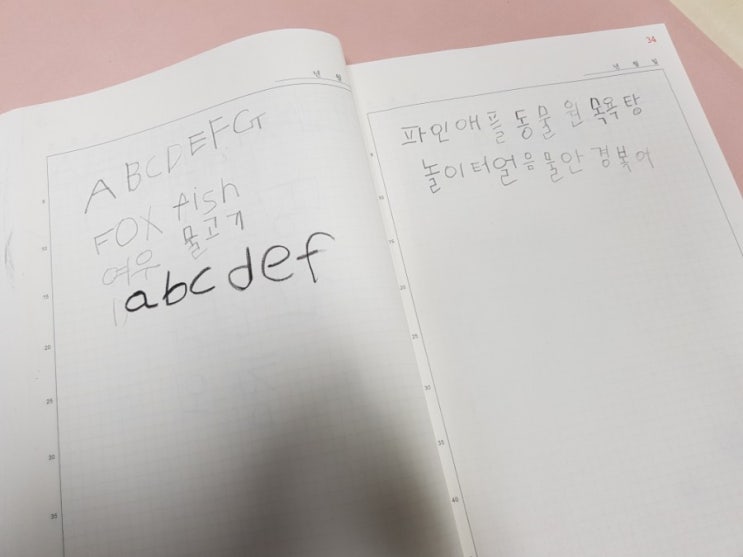 ABCDEFG
FOX fish
여우 물고기
abcdef
34
년 월
년 월 일
파인애플동물원목욕탕
놀이터얼음물안경붗어
5
10
15
20
25
30
35
5
10
15
20
25
30
35
40